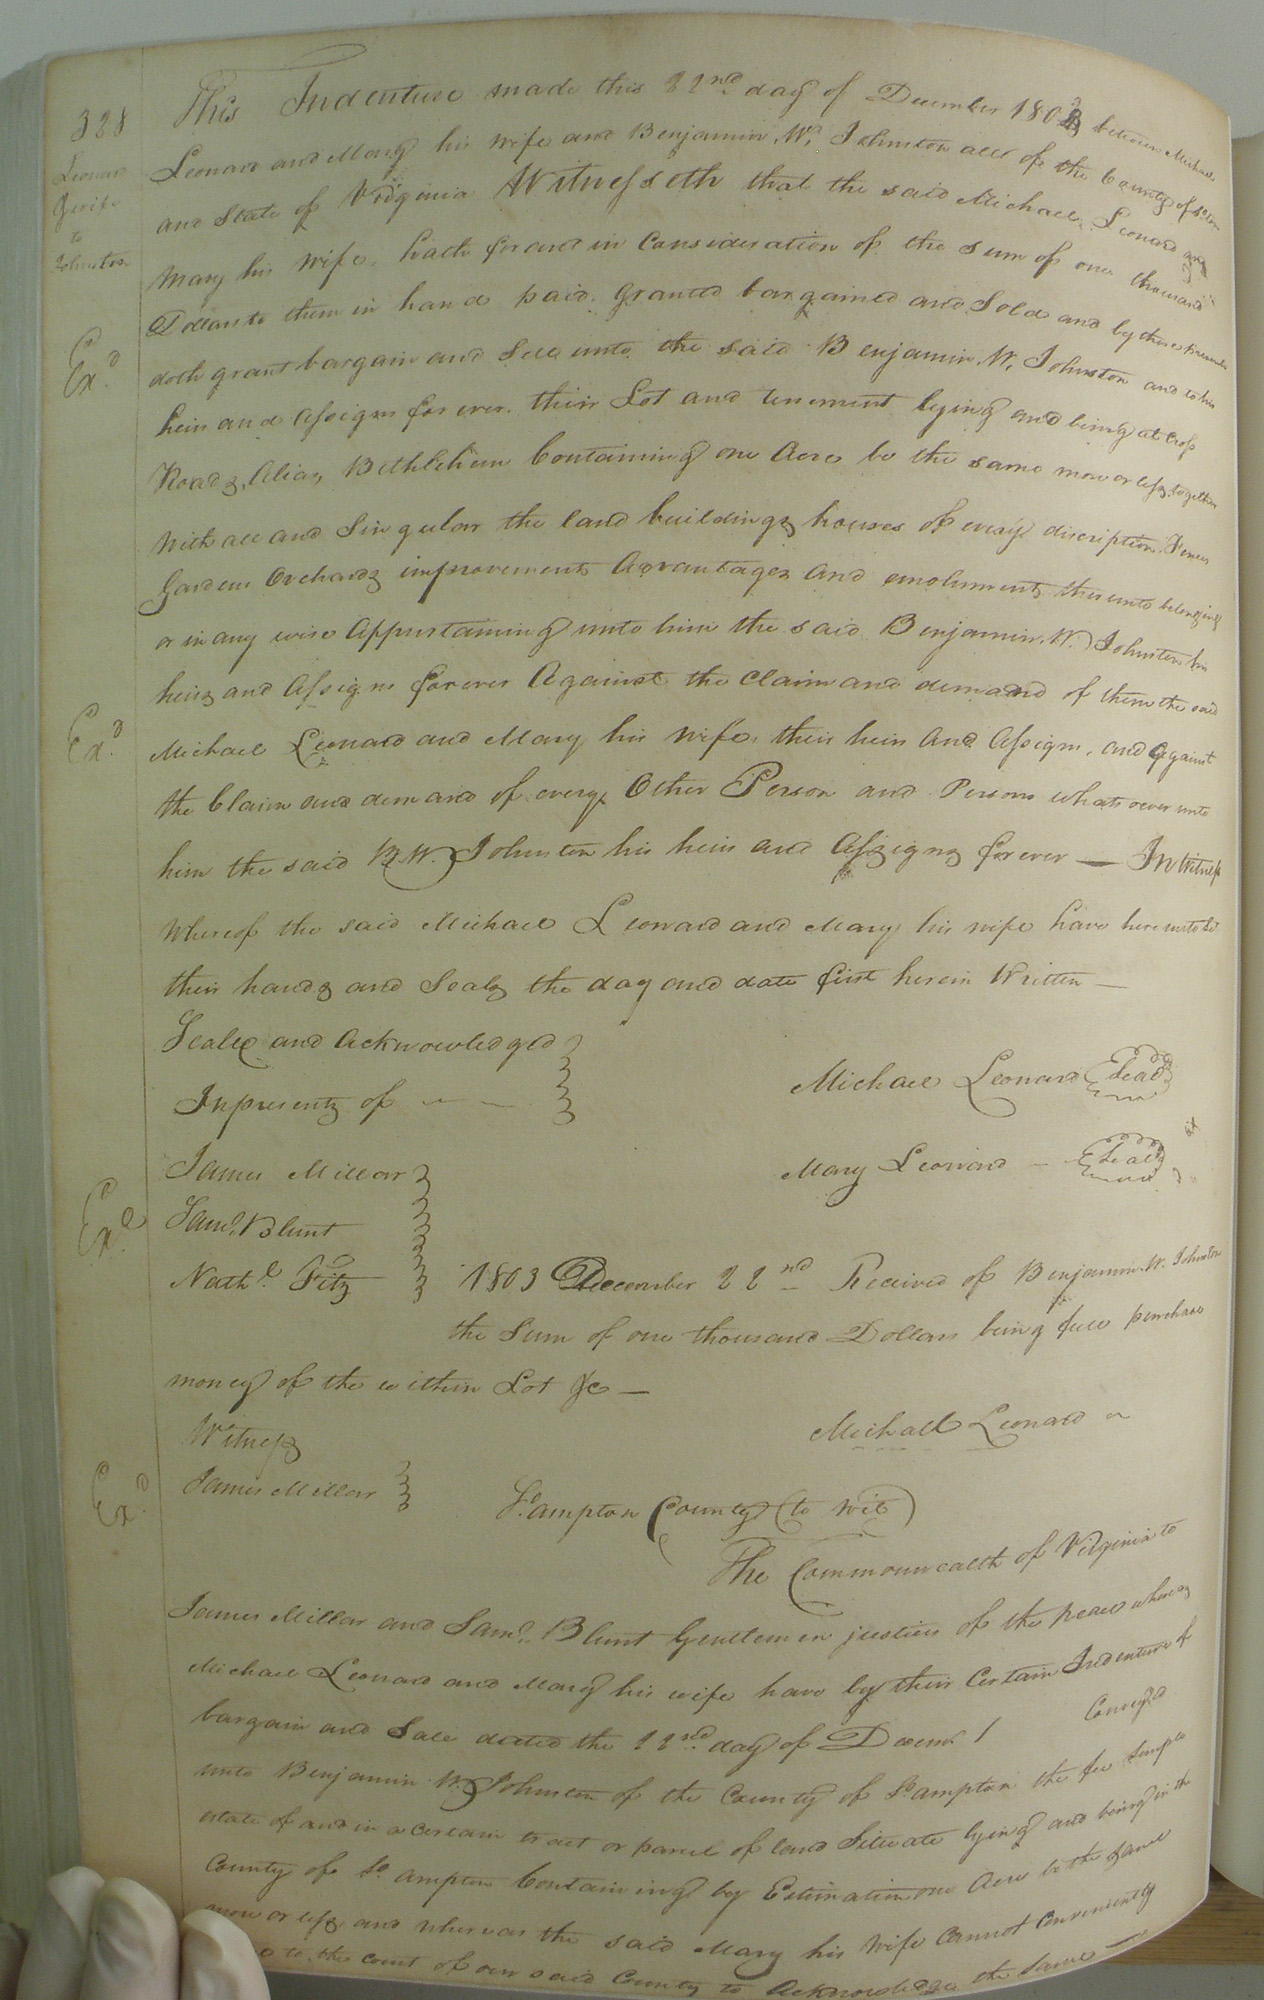 328
Leonard
& wife
to
Johnston
Exd
Exd
Exd
Exd
This Indenture made this 22nd day of December 1803 between Michael
Leonard and Mary his wife and Benjamin W. Johnston all of the County of So.ton
and State of Virginia Witnesseth that the said Michael Leonard and
Mary his wife, hath for and in Consideration of the Sum of one thousand
Dollars to them in hand paid. granted bargained and Sold and by these presents
doth grant bargain and Sell unto the said Benjamin W. Johnston and to his
heirs and assigns forever. their Lot and tenement lying and being at Cross
Roads, Alias, Bethlehem Containing one Acre be the same more or less, together
with all and Singular the land buildings houses of every discription. Fences
Gardens Orchards improvements Advantages and emoluments thereunto belonging
or in any wise Appertaining unto him the said Benjamin W. Johnston his
heirs and Assigns forever Against the Claim and demand of them the said
Michael Leonard and Mary his wife, their heirs and Assigns, and Against
the Claim and demand of every Other Person and Persons whatsoever unto
him the said B. W. Johnston his heirs and Assigns forever — In Witness
Whereof the said Michael Leonard and Mary his wife have hereunto set
their hands and Seals the day and date first herein Written —
Sealed and Acknowledged
In presents of
Michael Leonard Seal
James Millar
Mary Leonard — Seal
Saml. Blunt
Nathl Fitz
1803 December 22nd Received of Benjamin W. Johnston
the Sum of one thousand Dollars being full purchase
money of the within Lot &c —
Witness
Michael Leonard
James Millar
S.ampton County (to wit)
The Commonwealth of Virginia to
James Millar and Saml. Blunt Gentlemen justices of the peace whereas
Michael Leonard and Mary his wife have by their Certain Indenture of
bargain and Sale dated the 22nd day of Decemr 1 Conveyed
unto Benjamin W. Johnston of the County of So.ampton the fee Simple
estate of and in a certain tract or parcel of land Situate lying and being in the
County of So.ampton Containing by Estimation one Acre be the same
more or less, and whereas the said Mary his Wife Cannot Conveniently
to the court of our said County to Acknowledge the Same —